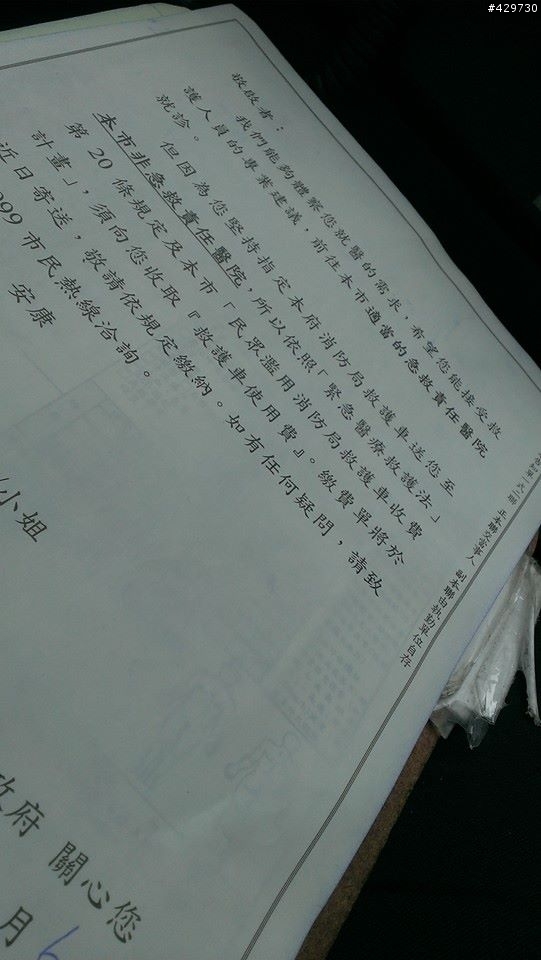 #429730
敬啟者：
我們能夠體察您就醫的需求，希望您能接受救
護人員的專業建議，前往本市適當的急救責任醫院
就診。
但因為您堅持指定本府消防局救護車送您至
本市非急救責任醫院，所以依照「緊急醫療救護法」
第 20 條規定及本市「民眾濫用消防局救護車收費
計畫」，須向您收取『救護車使用費』。繳費單將於
近日寄送，敬請依規定繳納。如有任何疑問，請致
999 市民熱線洽詢。
安康
小姐
政府 關心您
月 6
一式二聯 正本聯交當事人 副本聯由執勤單位自存